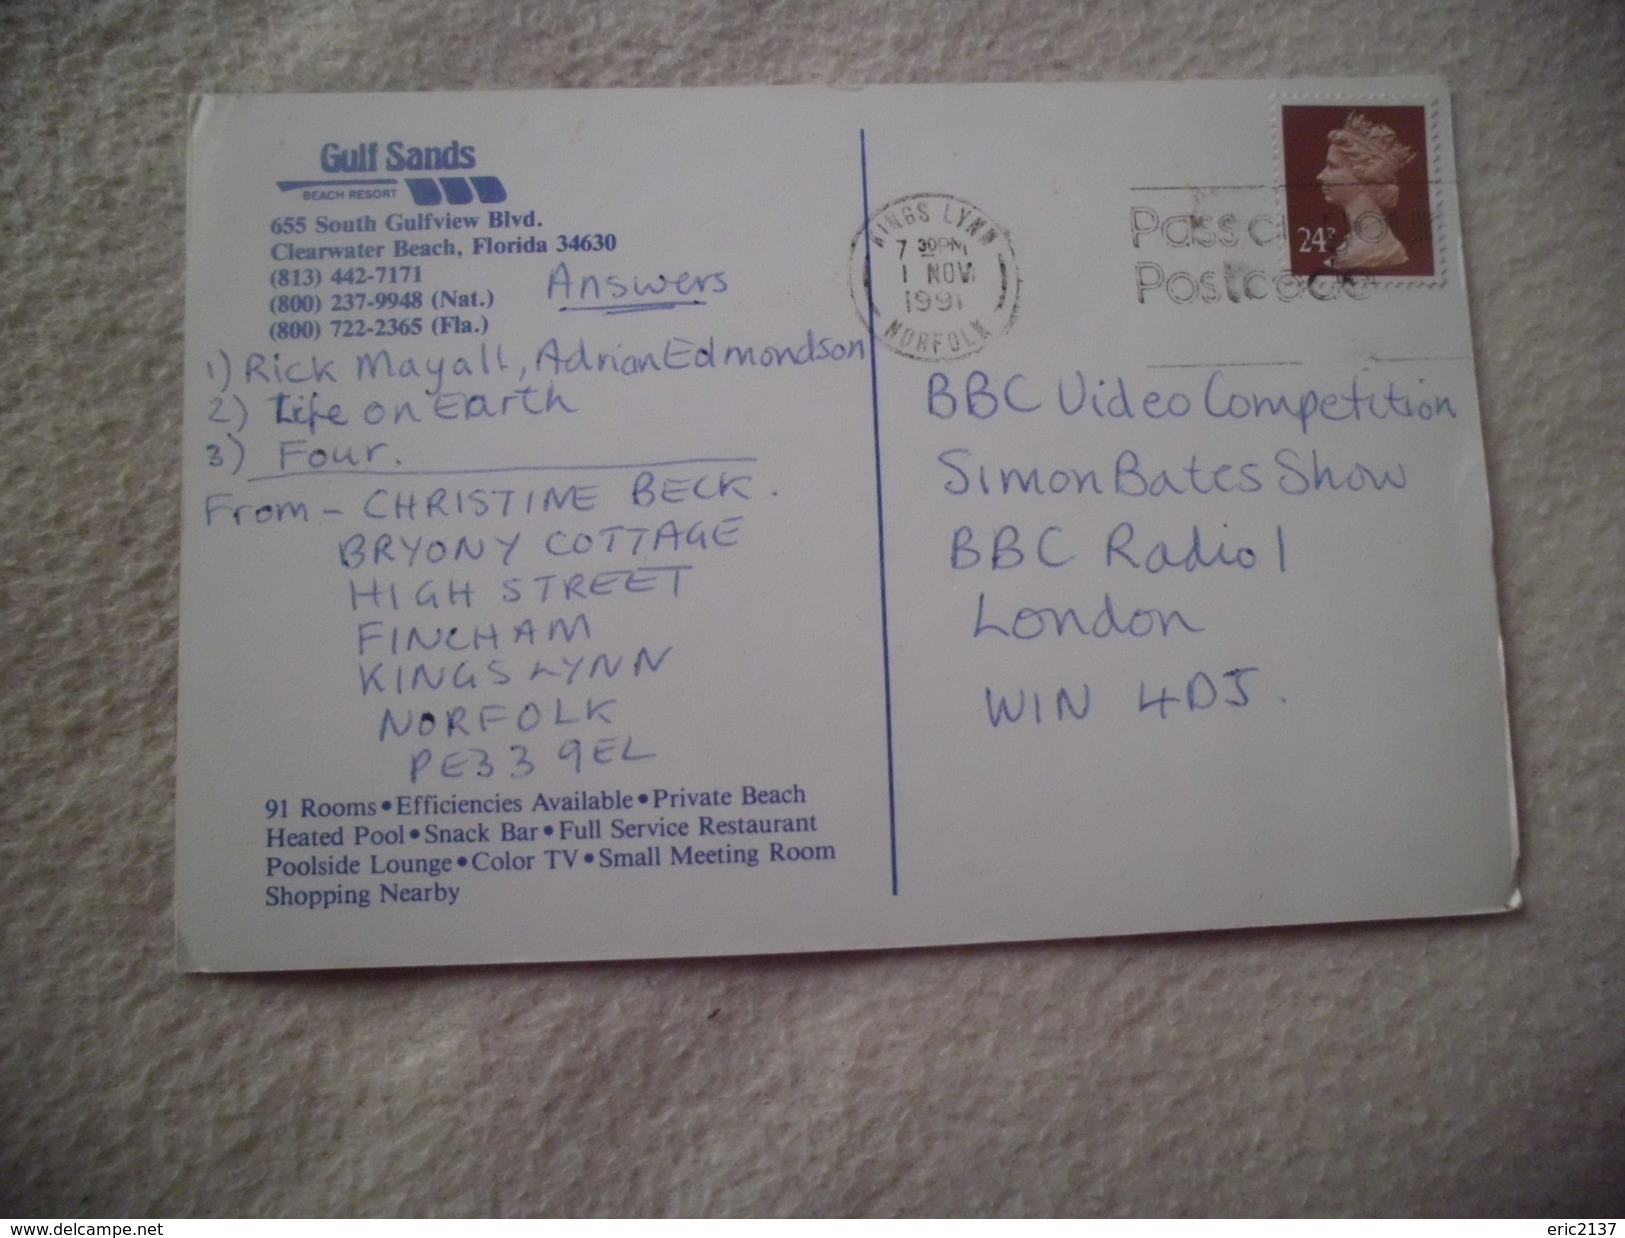 Gulf Sands
BEACH RESORT
655 South Gulfview Blvd.
Clearwater Beach, Florida 34630
(813) 442-7171
(800) 237-9948 (Nat.)
(800) 722-2365 (Fla.)
Answers
1) Rick Mayall, Adrian Edmondson
2) Life on Earth
3) Four.
From - CHRISTINE BECK.
BRYONY COTTAGE
HIGH STREET
FINCHAM
KINGS LYNN
NORFOLK
PE33 9EL
91 Rooms • Efficiencies Available • Private Beach
Heated Pool • Snack Bar • Full Service Restaurant
Poolside Lounge • Color TV • Small Meeting Room
Shopping Nearby
KINGS LYNN
7 30PM
1 NOV
1991
NORFOLK
Pass on your
Postcode
24P
BBC Video Competition
Simon Bates Show
BBC Radio 1
London
W1N 4DJ.
delcampe.net
eric2137